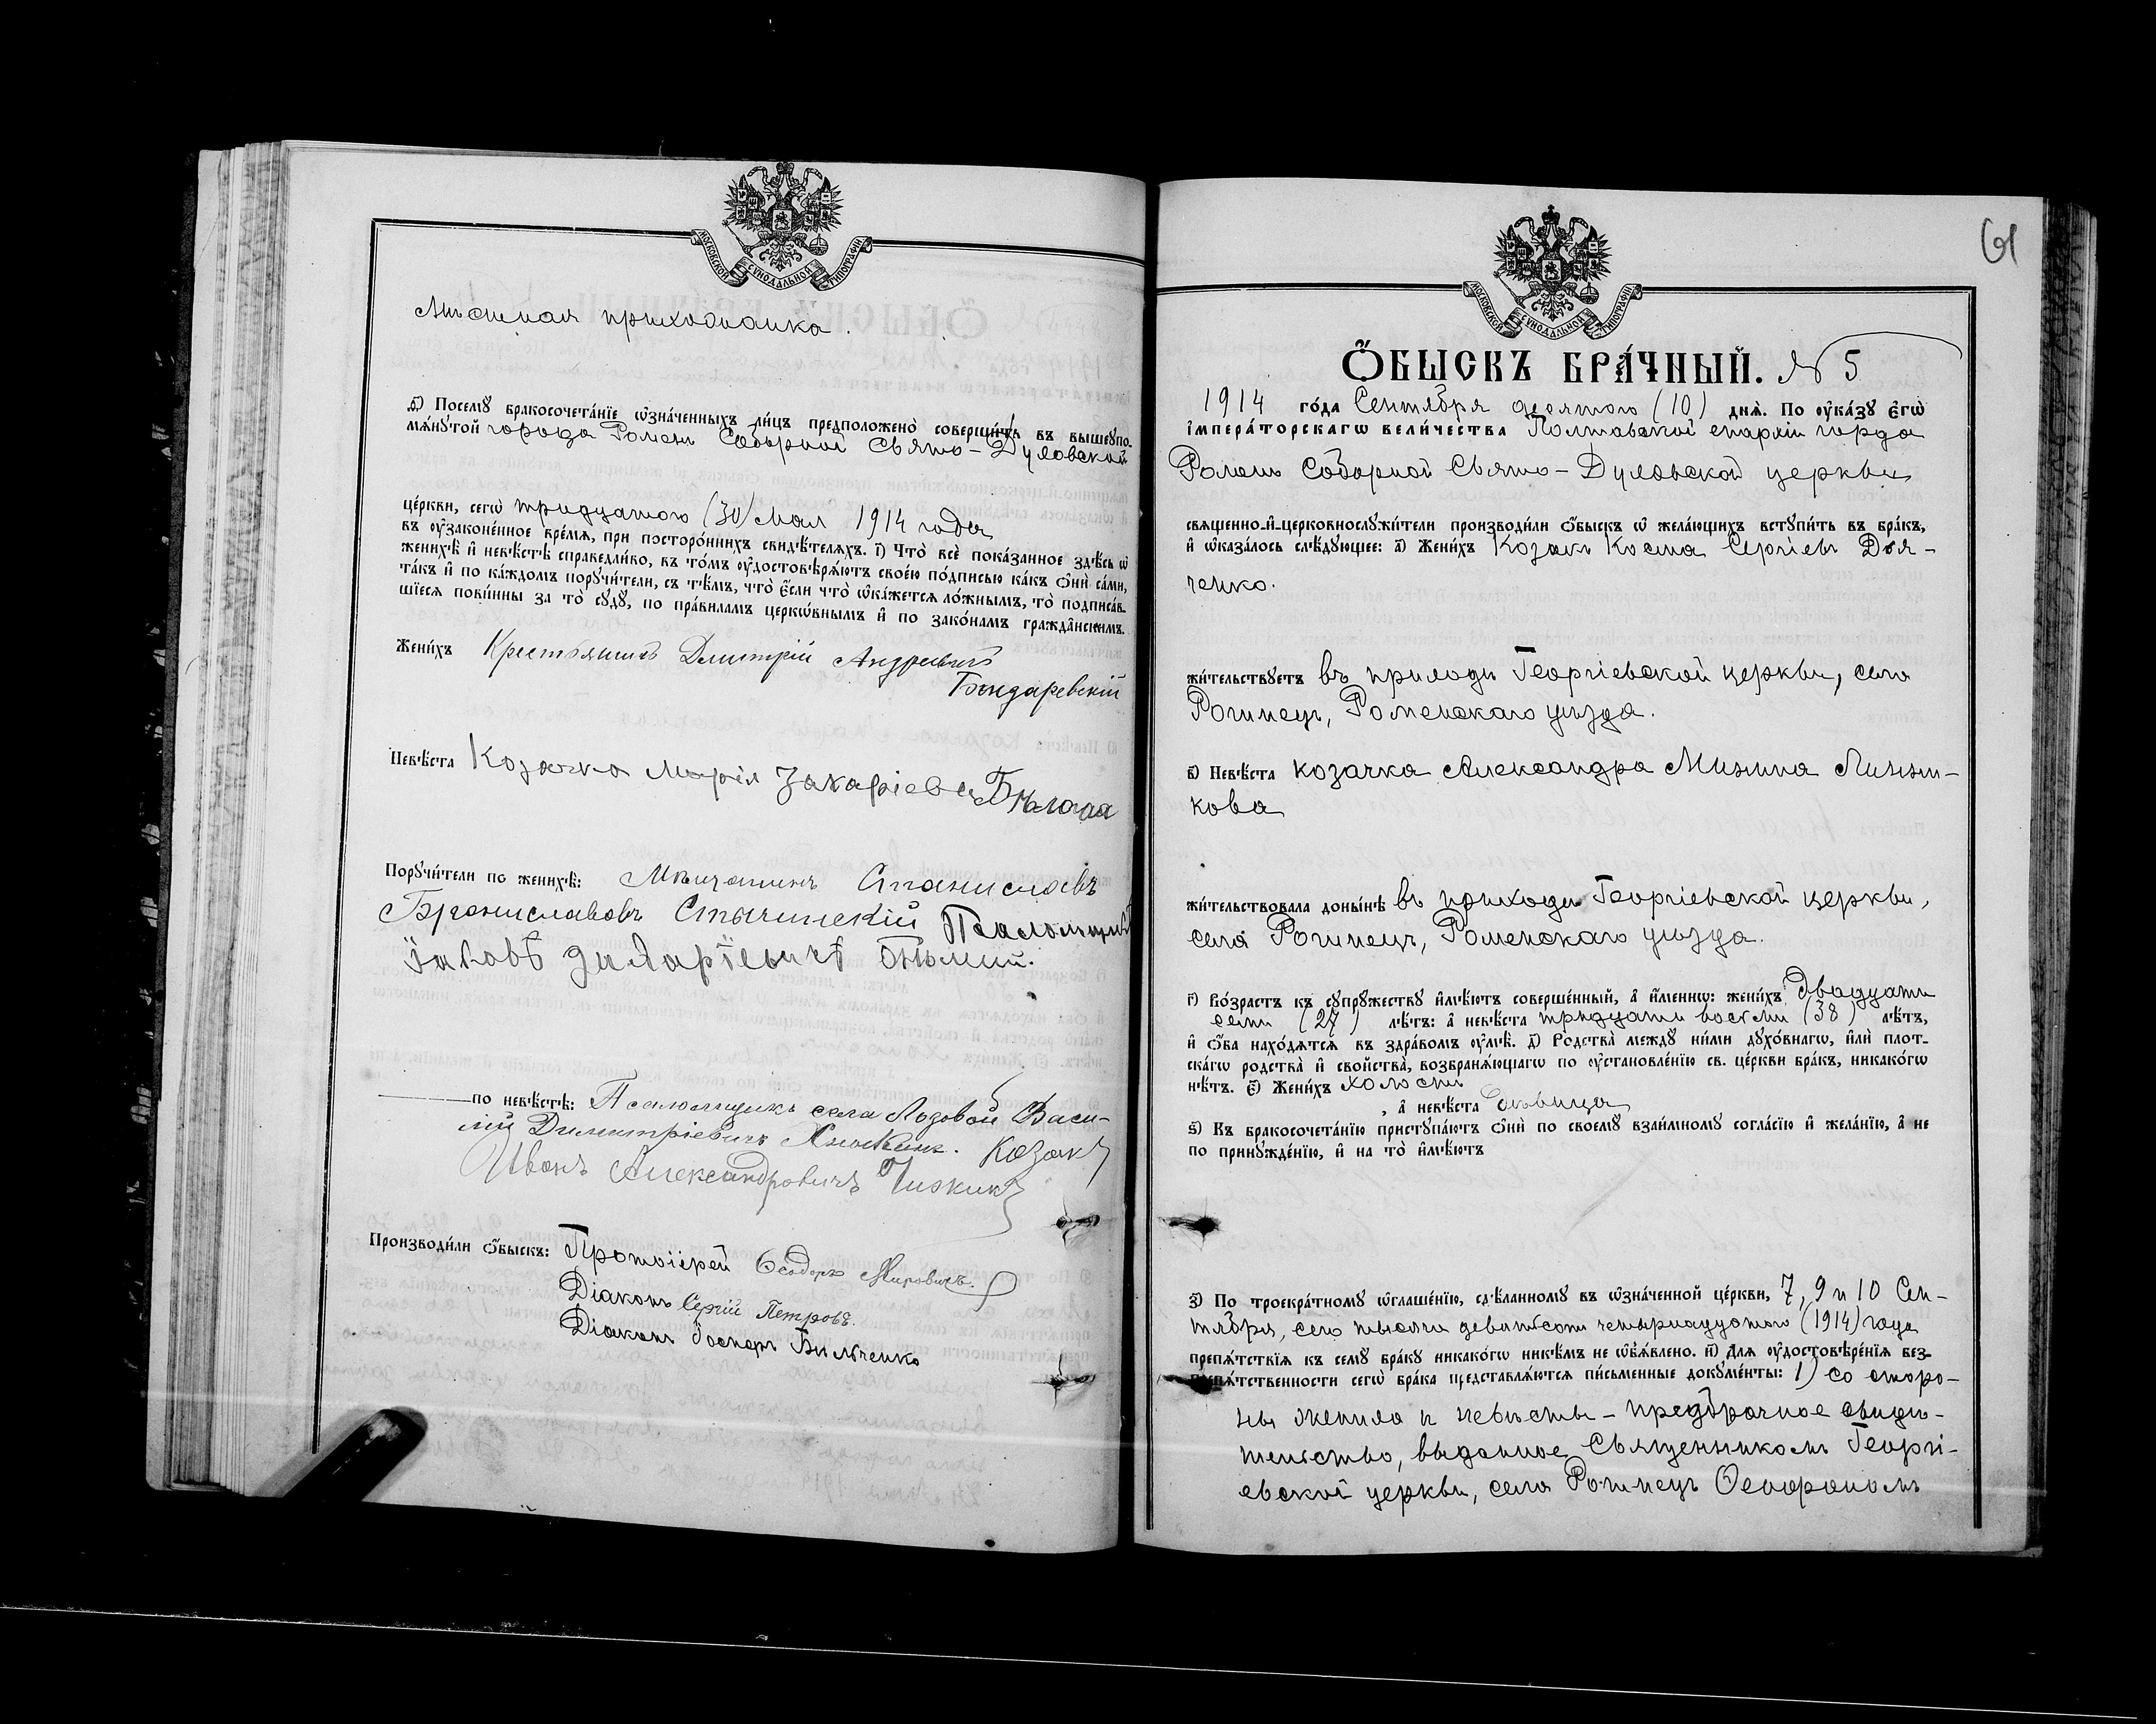 МОСКОВСКОЙ СѴНОДАЛЬНОЙ ТИПОГРАФІИ
Мѣстная прихожанка.
Ѳ҃) Посемꙋ бракосочета́нїе ѡ҆зна́ченныхъ ли́цъ предположено̀ соверши́ть въ вышеꙋпо-
мѧ́нꙋтой города Роменъ Соборной Свято-Духовской
це́ркви, сегѡ̀ тридцатого (30) Мая 1914 года
въ ᲂу҆зако́ненное вре́мѧ, при посторо́ннихъ свидѣ́телѧхъ. і҃) Что̀ всѐ пока́занное здѣ́сь ѡ҆
женихѣ̀ и҆ невѣ́стѣ справедли́во, въ то́мъ ᲂу҆достовѣрѧ́ютъ свое́ю по́дписью ка́къ ѻ҆нѝ са́ми,
та́къ и҆ по ка́ждомъ порꙋчи́тели, съ тѣ́мъ, что̀ є҆́сли что̀ ѡ҆ка́жетсѧ ло́жнымъ, то̀ подписа́в-
шїесѧ пови́нны за то̀ сꙋдꙋ̀, по пра́виламъ церкѡ́внымъ и҆ по зако́намъ гражда̂нскимъ.
Жени́хъ Крестьянинъ Дмитрій Андреевичъ
Бондаревскій
Невѣ́ста Козачка Марія Захаріевна Бѣлая
Порꙋчи́тели по женихѣ̀: Мѣщанинъ Станиславъ
Брониславовъ Стычинскій Псаломщикъ
Іаковъ Захаріевичъ Бѣлый.
по невѣ́стѣ: Псаломщикъ села Лозовой Васи-
лій Димитріевичъ козакъ
Иванъ Александровичъ
Производи́ли ѻ҆́быскъ: Протоіерей Ѳеодоръ Мировичъ.
Діаконъ Сергій Петровъ.
Діаконъ Іосифъ Бильченко
61
МОСКОВСКОЙ СѴНОДАЛЬНОЙ ТИПОГРАФІИ
Ѻ҆́БЫСКЪ БРА́ЧНЫЙ. № 5
1914 го́да Сентября десятого (10) днѧ̀. По ᲂу҆ка́зꙋ Є҆гѡ̀
І҆мпера́торскагѡ вели́чества Полтавской епархіи города
Роменъ Соборной Свято-Духовской церкви
свѧще́нно-и҆-церковнослꙋжи́тели производи́ли ѻ҆́быскъ ѡ҆ жела́ющихъ встꙋпи́ть въ бра́къ,
и҆ ѡ҆каза́лось слѣ́дꙋющее: а҃) Жени́хъ Козакъ Косма Сергіевъ Дья-
ченко.
жи́тельствꙋетъ въ приходѣ Георгіевской церкви, села
Рогинецъ, Роменскаго уѣзда.
в҃) Невѣ́ста козачка Александра Минина Линни-
кова
жи́тельствовала доны́нѣ въ приходѣ Георгіевской церкви,
села Рогинецъ, Роменскаго уѣзда.
г҃) Во́зрастъ къ сꙋпрꙋ́жествꙋ и҆мѣ́ютъ соверше́нный, а҆ и҆́меннѡ: жени́хъ Двадцати
семи (27) лѣ́тъ: а҆ невѣ́ста тридцати восьми (38) лѣ́тъ,
и҆ ѻ҆́ба нахо́дѧтсѧ въ здра́вомъ ᲂу҆мѣ̀. д҃) Родства̀ междꙋ ни́ми дꙋхо́внагѡ, и҆лѝ плот-
ска́гѡ родства̀ и҆ сво́йства̀, возбранѧ́ющагѡ по ᲂу҆становле́нїю св. це́ркви бра́къ, никако́гѡ
нѣ́тъ. є҃) Жени́хъ холостъ
, а҆ невѣ́ста вдовица
ѕ҃) Къ бракосочета́нїю пристꙋпа́ютъ ѻ҆нѝ по своемꙋ̀ взаи́мномꙋ согла́сїю и҆ жела́нїю, а҆ не
по принꙋжде́нїю, и҆ на то̀ и҆мѣ́ютъ
з҃) По троекра́тномꙋ ѡ҆глаше́нїю, сдѣ́ланномꙋ въ ѡ҆зна́ченной це́ркви, 7, 9 и 10 Сен-
тября, сего тысяча девятьсотъ четырнадцатого (1914) года
препѧ́тствїѧ къ семꙋ̀ бра́кꙋ никако́гѡ никѣ́мъ не ѡ҆б̾ѧ́влено. и҃) Длѧ ᲂу҆достовѣре́нїѧ без-
препѧ́тственности сегѡ̀ бра́ка представлѧ́ютсѧ пи́сьменные докꙋме́нты: 1) со сторо-
ны жениха и невѣсты - предбрачное свидѣ-
тельство, выданное Священникомъ Георгі-
евской церкви, села Рогинецъ